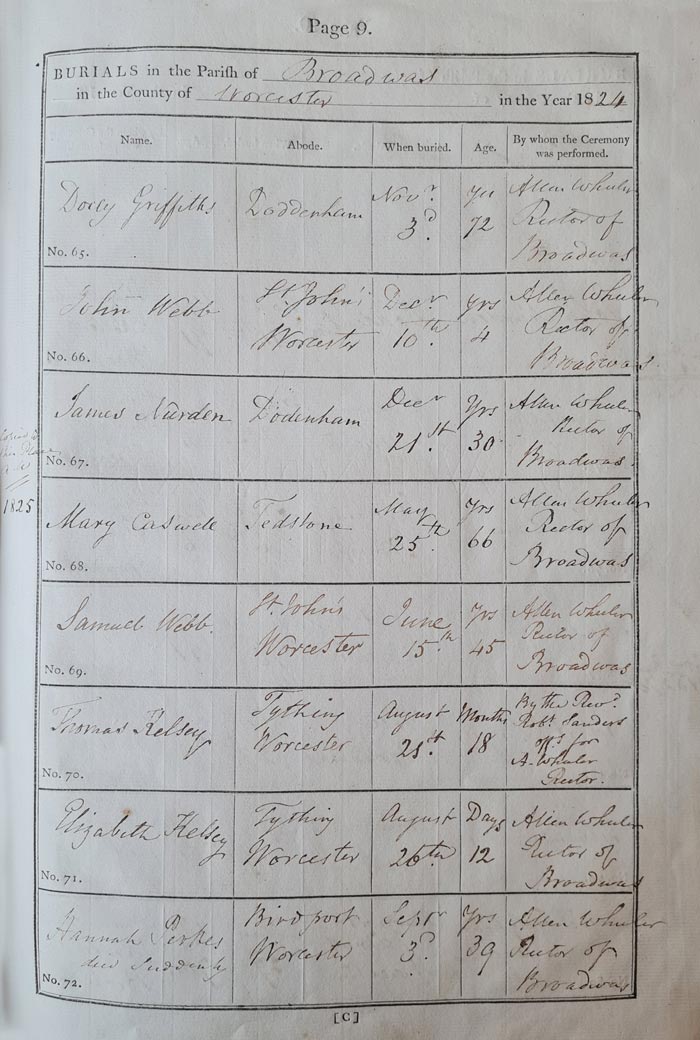 Page 9.
BURIALS in the Parish of Broadwas
in the County of Worcester in the Year 1824
Name. Abode. When buried. Age. By whom the Ceremony was performed.
Dolly Griffiths
No. 65.
Doddenham
Novr.
3d.
Yrs
72
Allen Wheler
Rector of
Broadwas
John Webb
No. 66.
St. John's
Worcester
Decr
10th.
Yrs
4
Allen Wheler
Rector of
Broadwas
James Nurden
No. 67.
Dodenham
Decr
21st
Yrs
30
Allen Wheler
Rector of
Broadwas
1825
Mary Caswell
No. 68.
Tedstone
May
25th.
Yrs
66
Allen Wheler
Rector of
Broadwas
Samuel Webb.
No. 69.
St. John's
Worcester
June
15th
Yrs
45
Allen Wheler
Rector of
Broadwas
Thomas Kelsey
No. 70.
Tything
Worcester
August
21st.
Months
18
By the Revd.
Robt. Sanders
for
A. Wheler
Rector.
Elizabeth Kelsey
No. 71.
Tything
Worcester
August
26th
Days
12
Allen Wheler
Rector of
Broadwas
Hannah Perkes
died Suddenly
No. 72.
Birdport
Worcester
Septr
3d.
Yrs
39
Allen Wheler
Rector of
Broadwas
[C]